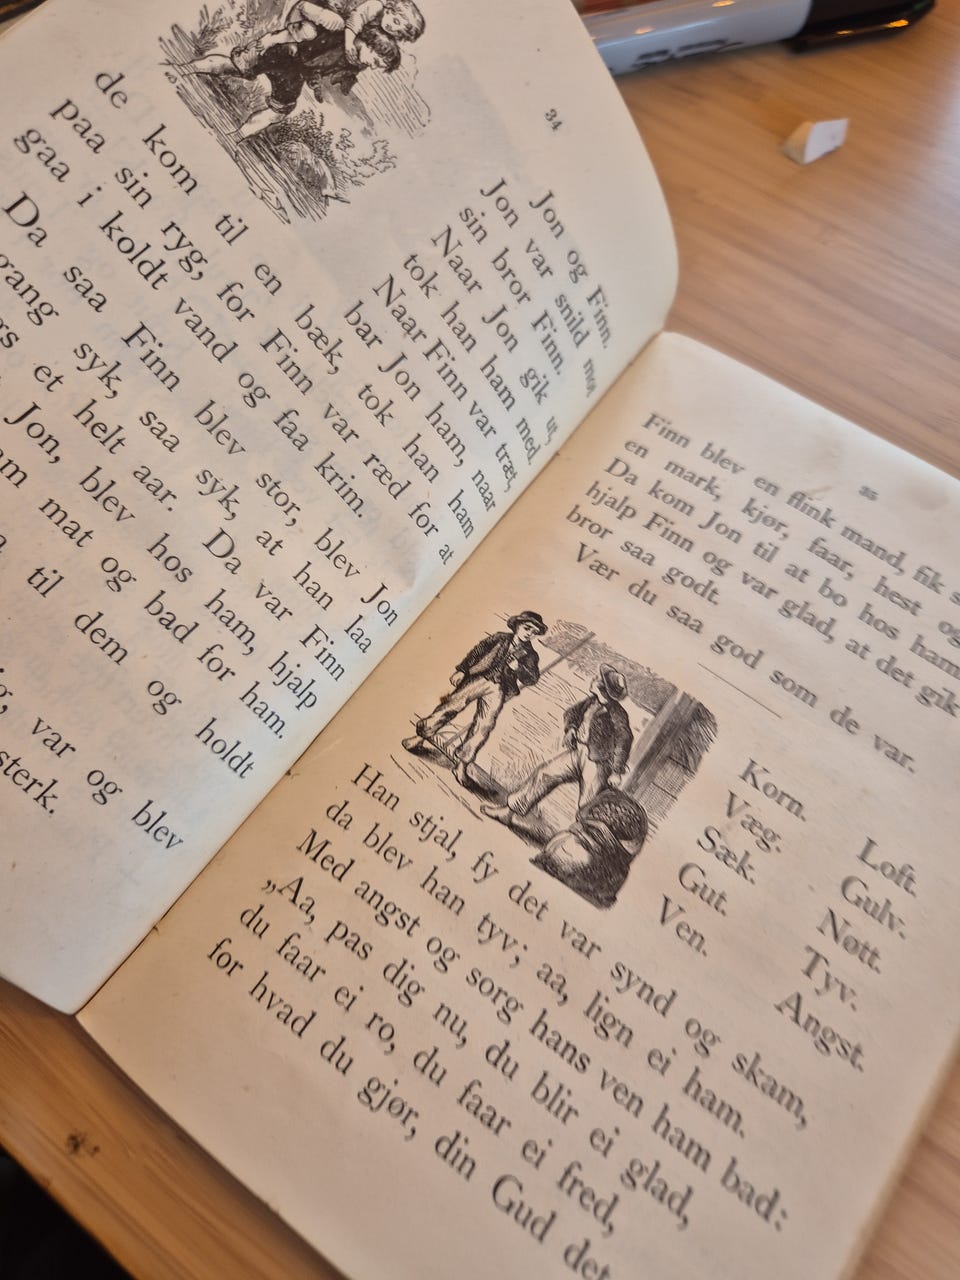 34
Jon og Finn.
Jon var snild mot
sin bror Finn.
Naar Jon gik ut,
tok han ham med.
Naar Finn var træt,
bar Jon ham, naar
de kom til en bæk, tok han ham
paa sin ryg, for Finn var ræd for at
gaa i koldt vand og faa krim.
Da saa Finn blev stor, blev Jon
gang syk, saa syk, at han laa
et helt aar. Da var Finn
Jon, blev hos ham, hjalp
mat og bad for ham.
til dem og holdt
var og blev
sterk.
35
Finn blev en flink mand, fik
en mark, kjør, faar, hest og
Da kom Jon til at bo hos ham
hjalp Finn og var glad, at det gik
bror saa godt.
Vær du saa god som de var.
Korn. Loft.
Væg. Gulv.
Sæk. Nøtt.
Gut. Tyv.
Ven. Angst.
Han stjal, fy det var synd og skam,
da blev han tyv; aa, lign ei ham.
Med angst og sorg hans ven ham bad:
„Aa, pas dig nu, du blir ei glad,
du faar ei ro, du faar ei fred,
for hvad du gjør, din Gud det